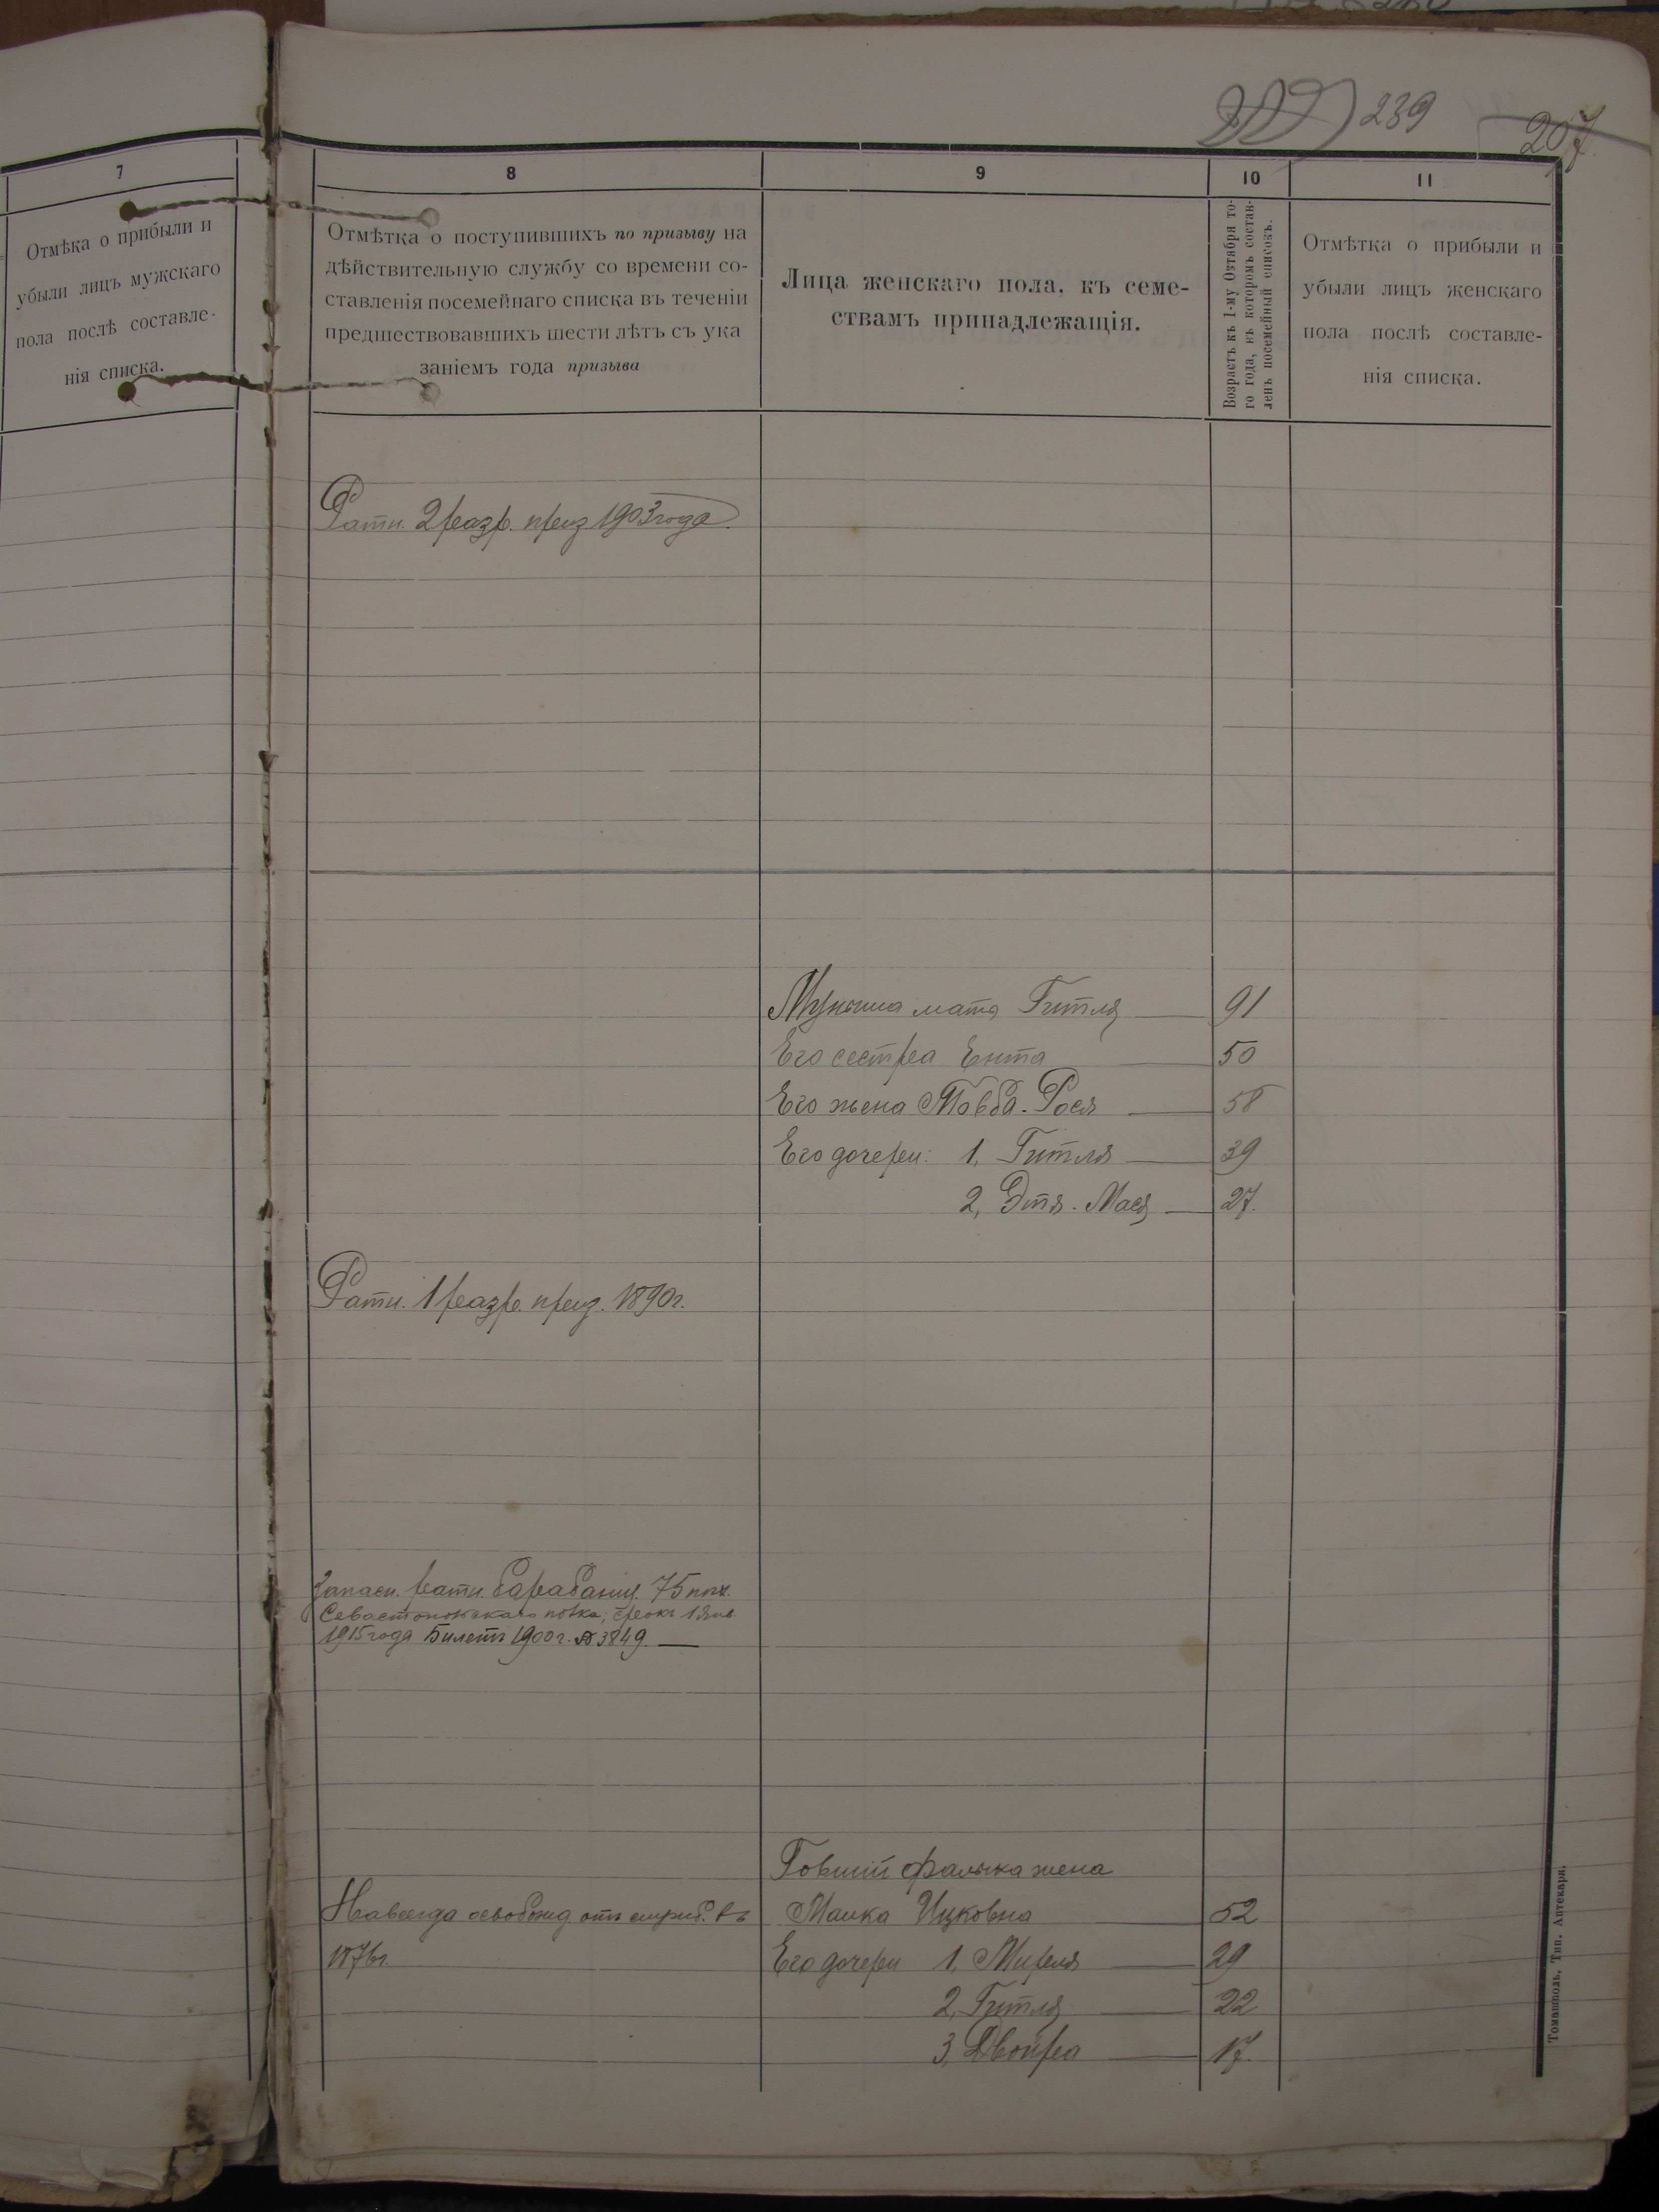 239
207.
7
Отмѣка о прибыли и
убыли лицъ мужскаго
пола послѣ составле-
нія списка.
8
Отмѣтка о поступившихъ по призыву на
дѣйствительную службу со времени со-
ставленія посемейнаго списка въ теченіи
предшествовавшихъ шести лѣтъ съ ука
заніемъ года призыва
9
Лица женскаго пола, къ семе-
ствамъ принадлежащія.
10
Возрастъ къ 1-му Октября то-
го года, въ которомъ состав-
ленъ посемейный списокъ.
11
Отмѣтка о прибыли и
убыли лицъ женскаго
пола послѣ составле-
нія списка.
Ратн. 2 разр. приз 1903 года.
мать Гитля 91
Его сестра Ента 50
Его жена Товба-Рося 58
Его дочери: 1, Гитля 39
2, Этя-Мася 27.
Ратн. 1 разр. приз. 1890 г.
Запасн. ратн. барабанщ. 75 пѣх.
Севастопольскаго полка, срокъ 1 Янв.
1915 года Билетъ 1900 г. № 3849.
Говшiй Фалька жена
Навсегда освобожд отъ служб. въ
Малка Ицковна 52
1876 г.
Его дочери 1, Миреля 29
2, Гитля 22
3, Двойра 17.
Томашполь, Тип. Аптекаря.